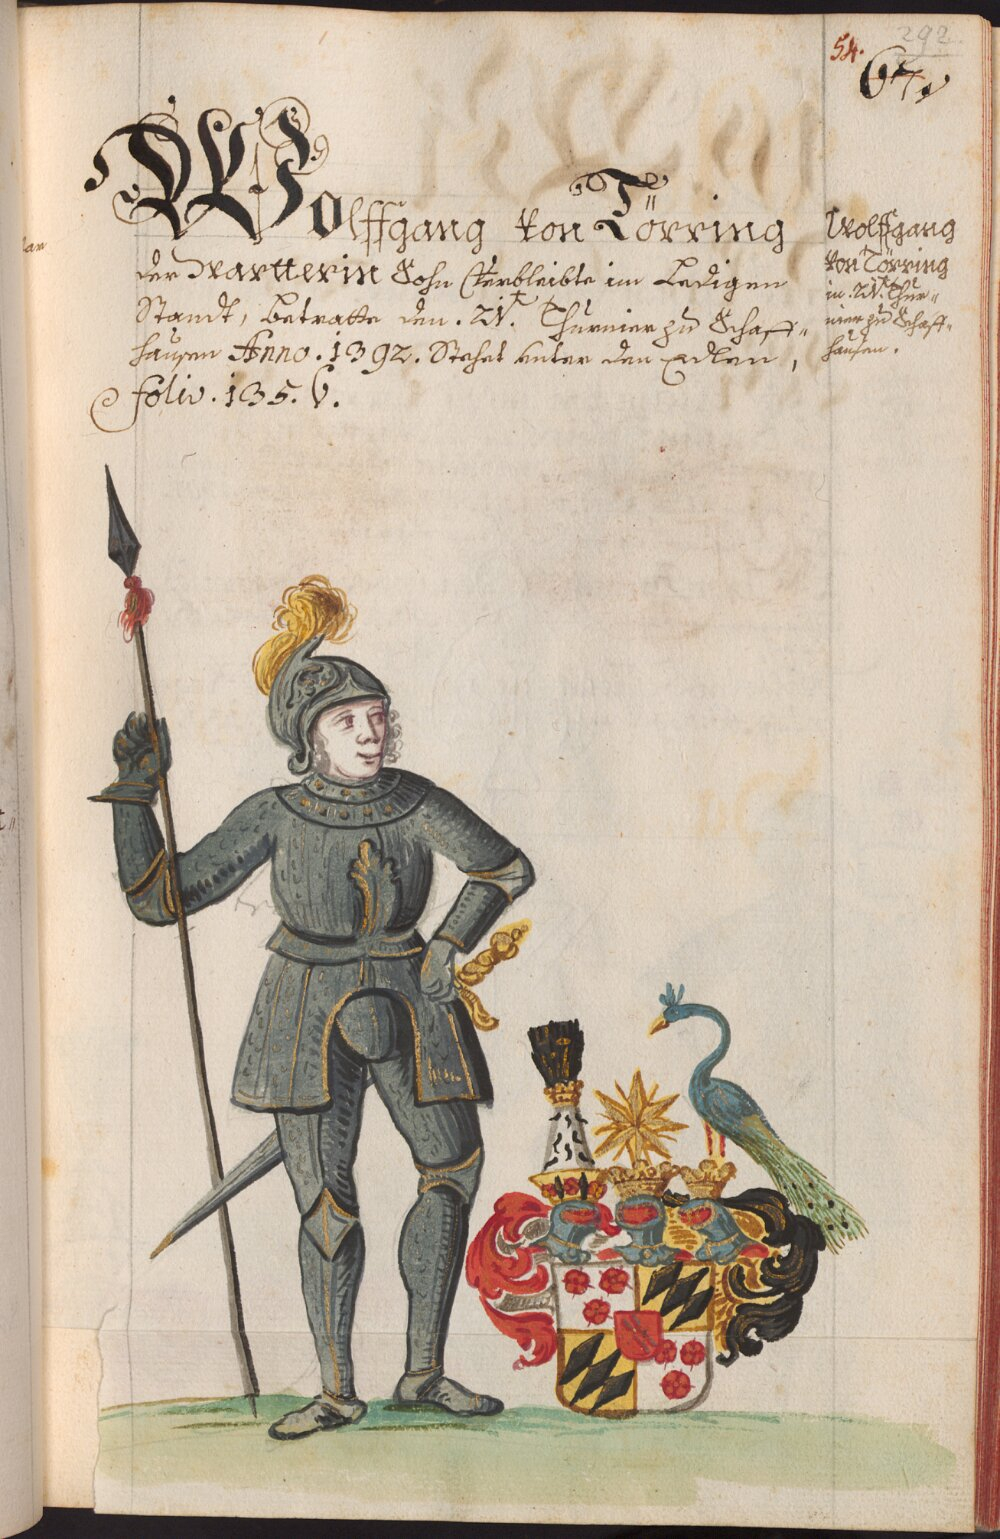 292.
54.
67.
Wolffgang von Törring
der Martterin Sohn Verbleibte im Ledigen
Standt, betratte den .21.t Thurnier zu Schaff=
hausen Anno .1392. Stehet unter den Edlen,
folio .135. b.
Wolffgang
von Törring
in .21.t Thur=
nier zu Schaff=
hausen.